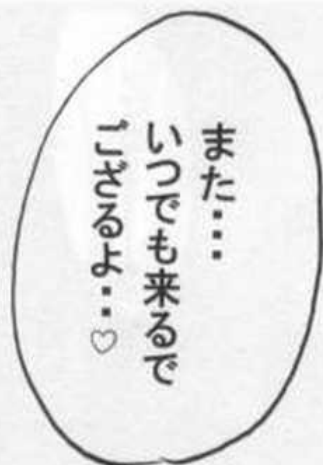 また・・・
いつでも来るで
ござるよ・・♡